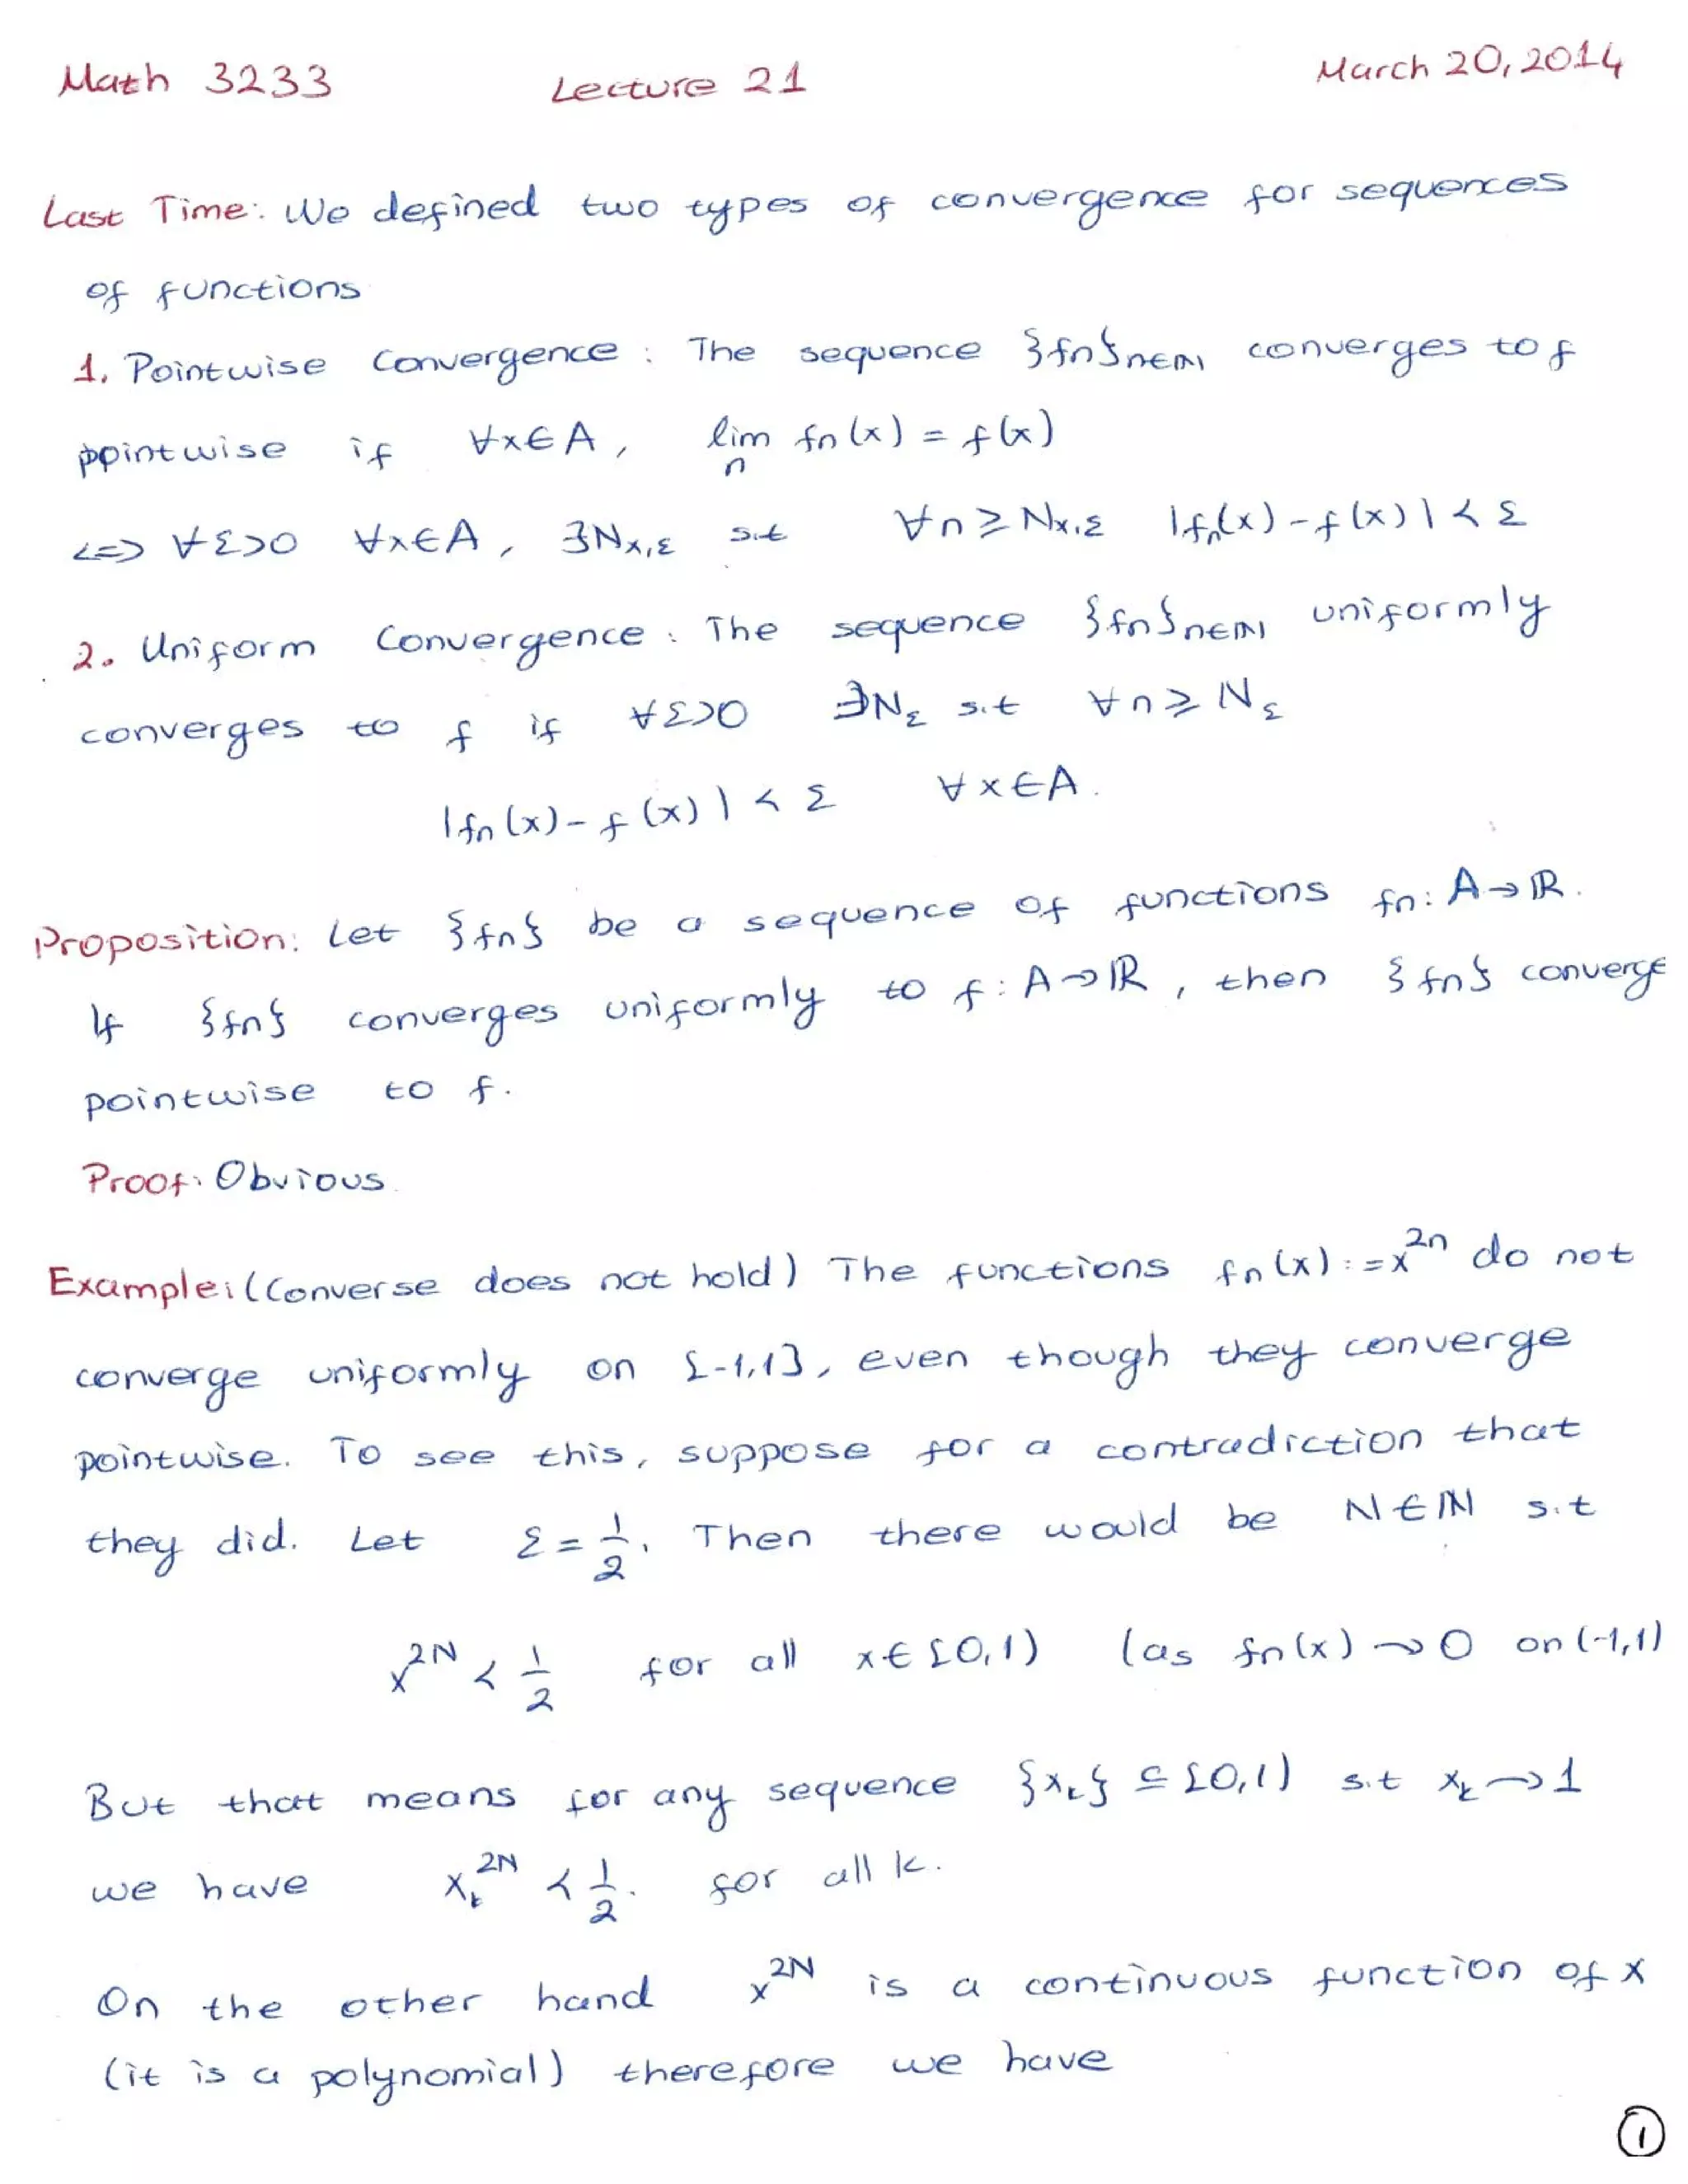 Math 3233 Lecture 21 March 20, 2014
Last Time: We defined two types of convergence for sequences
of functions
1. Pointwise Convergence : The sequence {fn}n∈ℕ converges to f
pointwise if ∀x∈A, lim fn(x) = f(x)
n
<=> ∀ε>0 ∀x∈A, ∃Nx,ε s.t ∀n≥Nx,ε |fn(x)-f(x)| < ε
2. Uniform Convergence : The sequence {fn}n∈ℕ uniformly
converges to f if ∀ε>0 ∃Nε s.t ∀n≥Nε
|fn(x)-f(x)| < ε ∀x∈A.
Proposition: Let {fn} be a sequence of functions fn: A→ℝ.
If {fn} converges uniformly to f: A→ℝ, then {fn} converge
pointwise to f.
Proof: Obvious.
Example: (Converse does not hold) The functions fn(x):=x^2n do not
converge uniformly on [-1,1], even though they converge
pointwise. To see this, suppose for a contradiction that
they did. Let ε = 1/2. Then there would be N∈ℕ s.t
x^2N < 1/2 for all x∈[0,1) (as fn(x)→0 on (-1,1)
But that means for any sequence {xk} ⊆ [0,1) s.t xk→1
we have xk^2N < 1/2. for all k.
On the other hand x^2N is a continuous function of x
(it is a polynomial) therefore we have
1